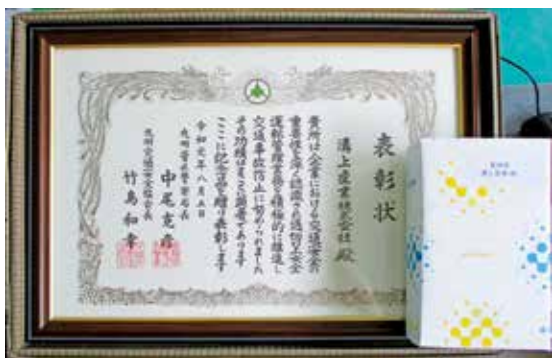 表彰状
溝上産業株式会社 殿
貴所は企業における交通安全の
重要性を深く認識され適切な安全
運転管理業務を積極的に推進し
交通事故防止に努められました
その功績はまことに顕著であります
ここに記念品を贈り表彰します
令和元年八月五日
中尾
竹島和幸